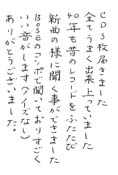 CD3枚届きました
全てうまく出来上っていました
40年も昔のレコードをふたたび
新曲の様に聞く事ができました
BOSEのコンポで聞いておりすごく
いい音がします(ノイズなし)
ありがとうございました